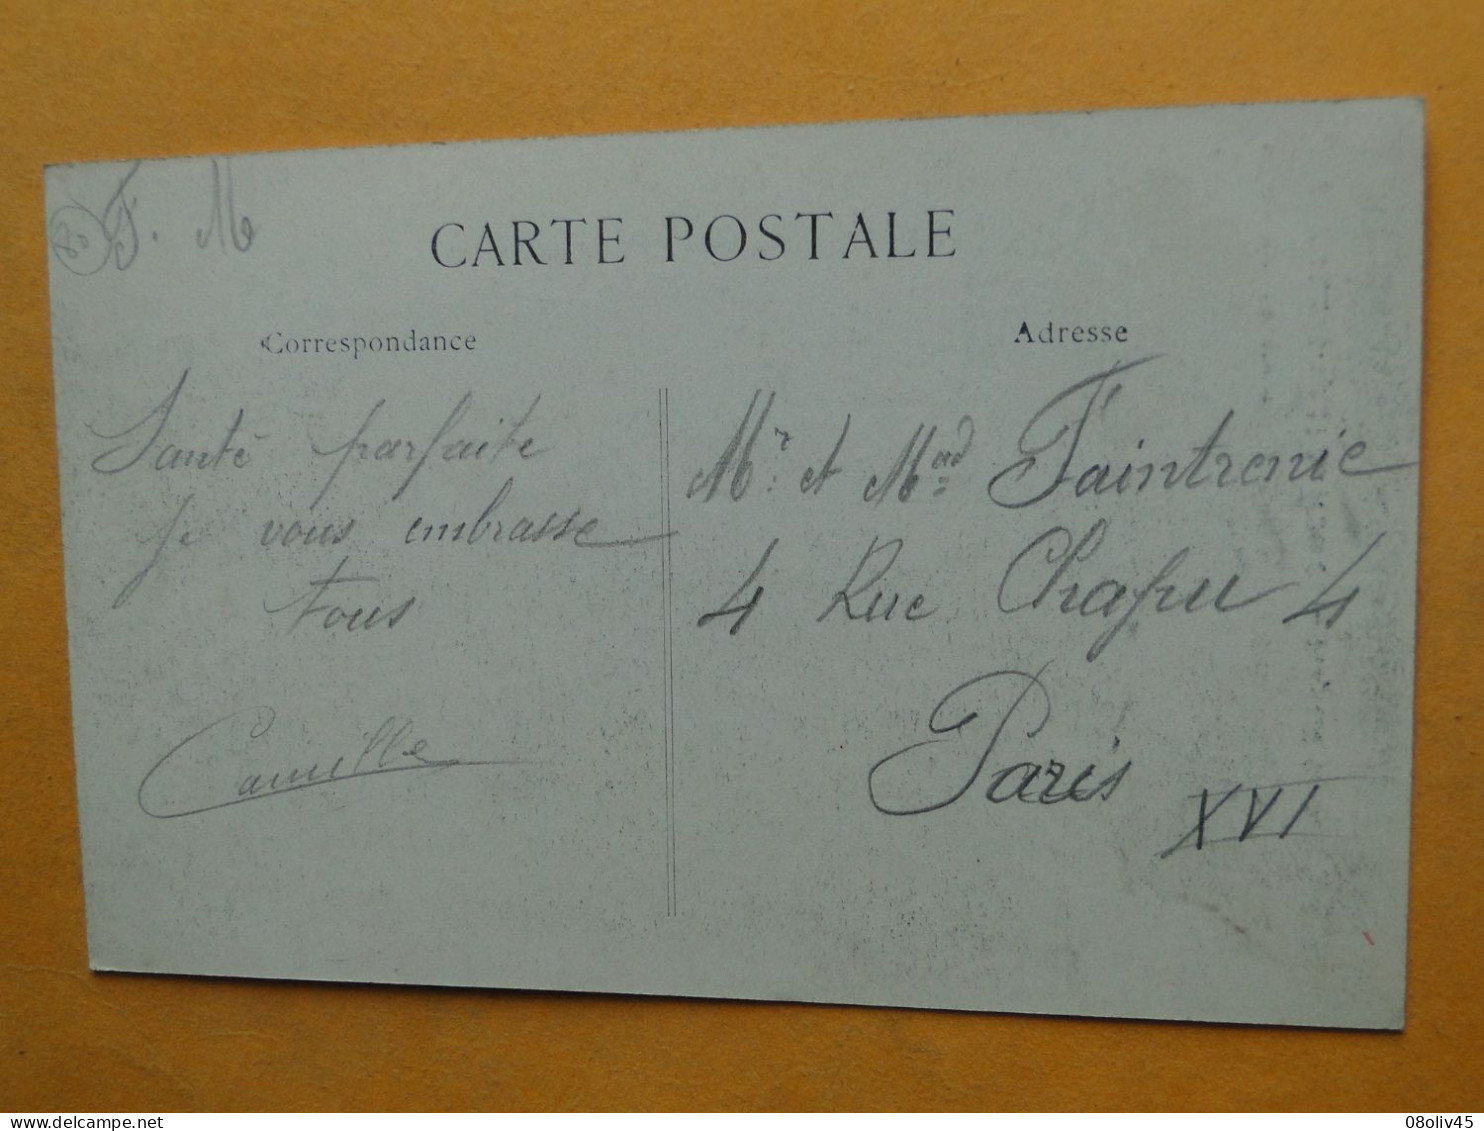 80 F. M
CARTE POSTALE
Correspondance
Adresse
Santé parfaite
Je vous embrasse
tous
Camille
Mr. et Mad Faintrenie
4 Rue Chapu 4
Paris
XVI
delcampe.net
08oliv45